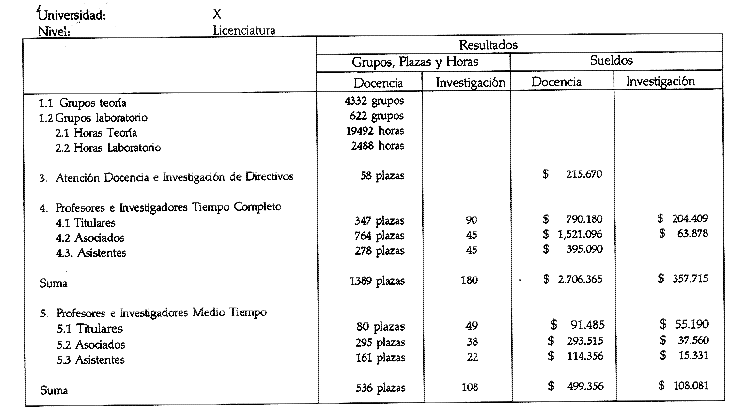 Universidad: X
Nivel: Licenciatura
Resultados
Grupos, Plazas y Horas Sueldos
Docencia Investigación Docencia Investigación
1.1 Grupos teoría 4332 grupos
1.2 Grupos laboratorio 622 grupos
2.1 Horas Teoría 19492 horas
2.2 Horas Laboratorio 2488 horas
3. Atención Docencia e Investigación de Directivos 58 plazas $ 215.670
4. Profesores e Investigadores Tiempo Completo
4.1 Titulares 347 plazas 90 $ 790.180 $ 204.409
4.2 Asociados 764 plazas 45 $ 1,521.096 $ 63.878
4.3. Asistentes 278 plazas 45 $ 395.090
Suma 1389 plazas 180 $ 2.706.365 $ 357.715
5. Profesores e Investigadores Medio Tiempo
5.1 Titulares 80 plazas 49 $ 91.485 $ 55.190
5.2 Asociados 295 plazas 38 $ 293.515 $ 37.560
5.3 Asistentes 161 plazas 22 $ 114.356 $ 15.331
Suma 536 plazas 108 $ 499.356 $ 108.081